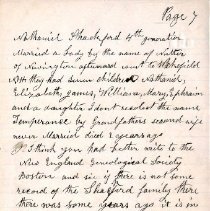 Page 7
Nathaniel Shackford 4th generation
Married a Lady by the name of Nutter
of Newington afterward went to Wakefield
N.H. they had seven children Nathaniel,
Elizabeth, James, William, Mary, Ephraim
and a daughter I dont recolect the name
Temperance by Grandfathers second wife
never Married died 2 years ago
I think you had better write to the
New England Geneological Society
Boston and see if there is not some
record of the Shackford family there
there was some years ago it is in